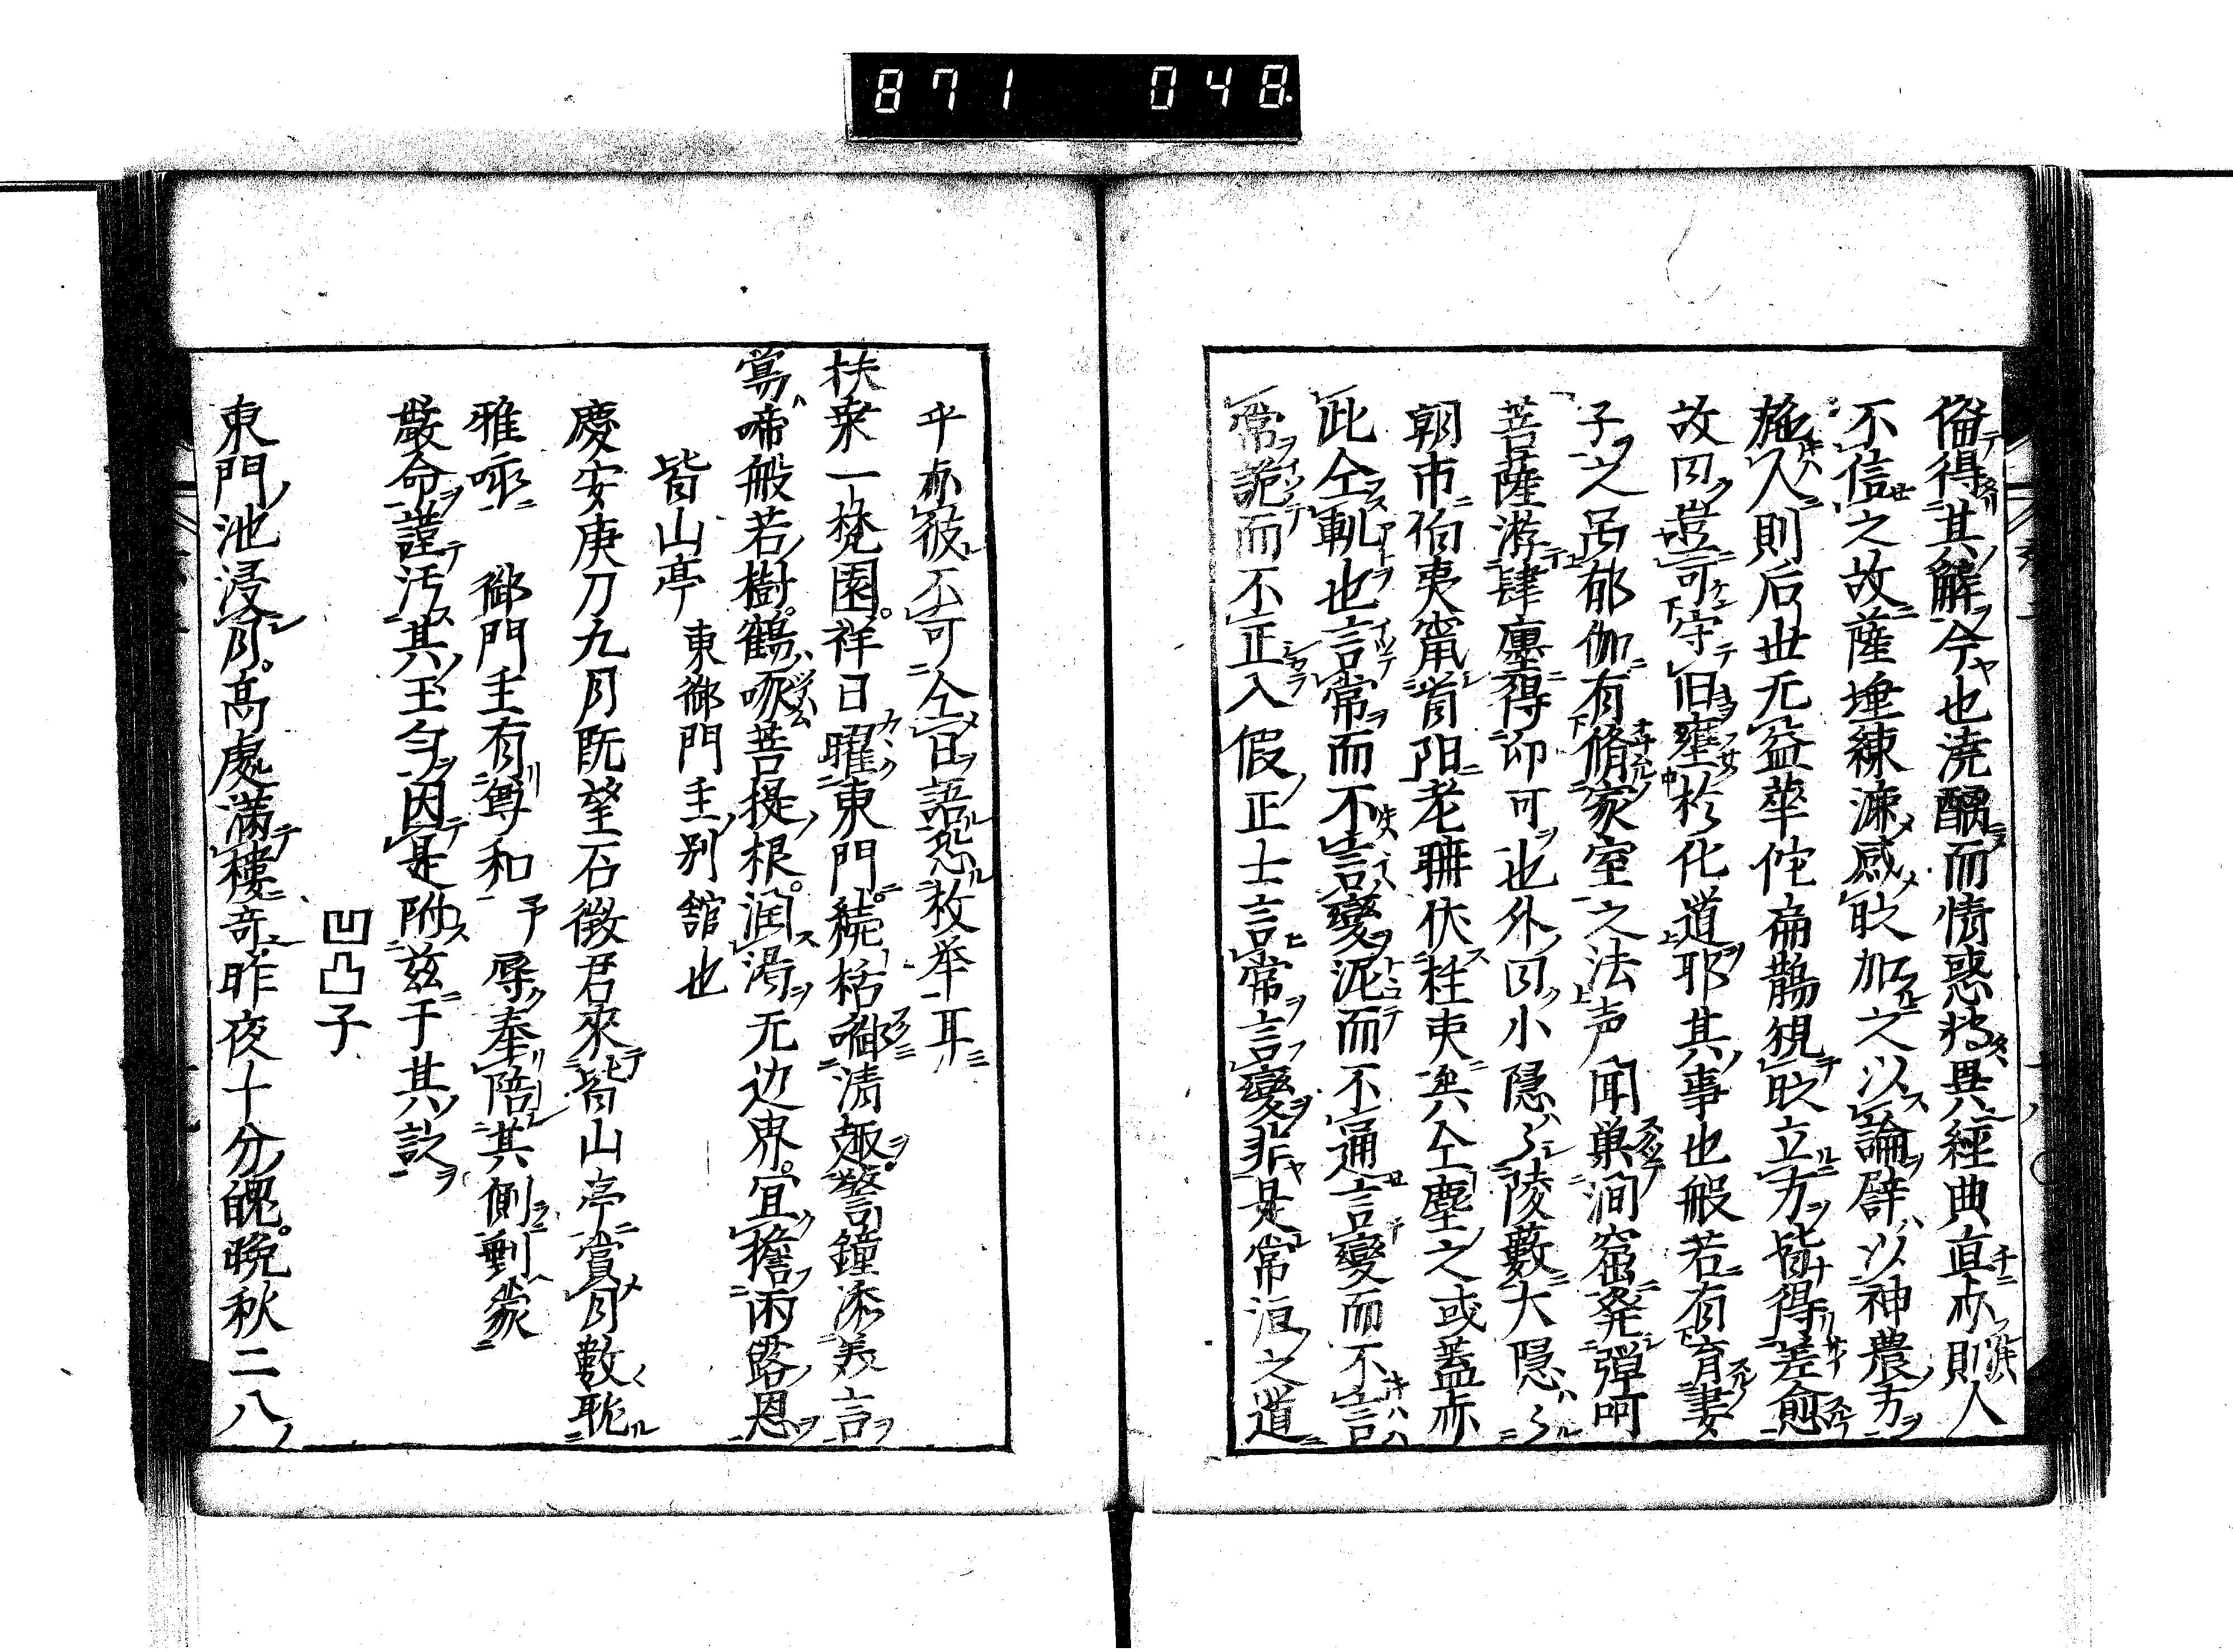 871 048
倫得其解今也澆醨而情惑特異經典直亦則人
不信之故薩埵練凍感㪽加之以論辟以神農方
施人則后世无益華佗扁鵲視㪽立方皆得差愈
故曰豈可守旧壅於化道耶其事也般若有育妻
子之呂郁伽有脩家室之法声聞巣澗窟発彈呵
菩薩游肆廛得印可也外曰小隱々陵藪大隱々
朝市伯夷竄首阳老聃伏柱吏與仝塵之或蓋亦
此仝軌也言常而不言變泥而不通言變而不言
常詭而不正入假正士言常言變非是常洹之道
乎亦彼不可仝日語恐枚举耳
扶桒一梵園祥日曜東門
清趣警鐘添美言
啼般若樹鶴啄菩提根润渇无边界宜擔雨露恩
皆山亭 東御門主別舘也
慶安庚刀九月既望石徴君來皆山亭賞月數毗
雅 御門主有尊和 予辱奉陪其側剰蒙
嚴命謹汚其玉因是附兹于其
凹凸子
東門池浸月高處滿樓奇昨夜十分魄晩秋二八